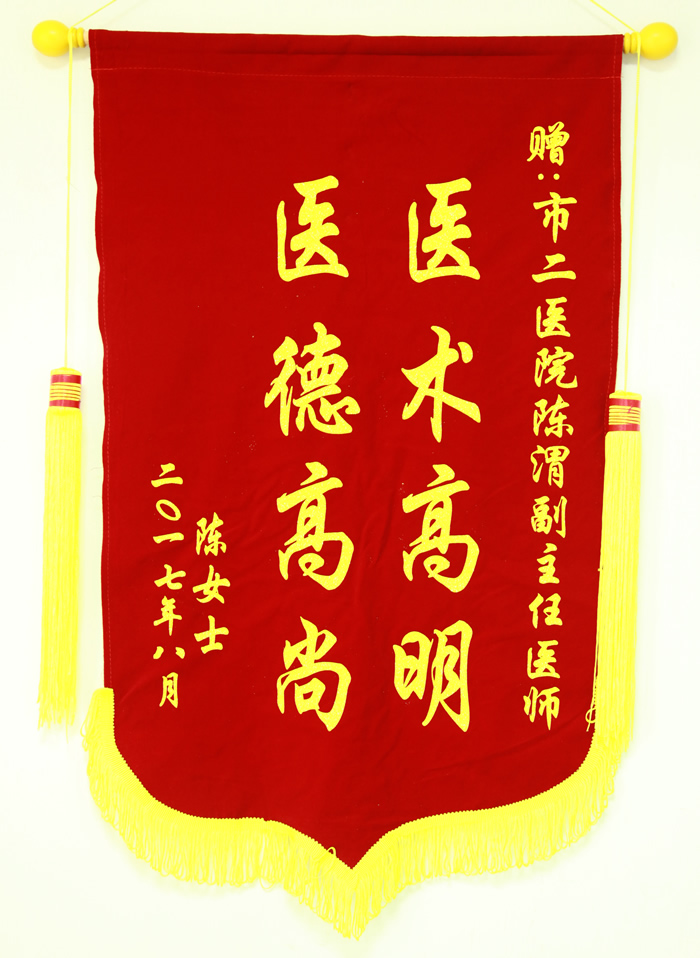 赠:市二医院陈渭副主任医师
医术高明
医德高尚
陈女士
二〇一七年八月